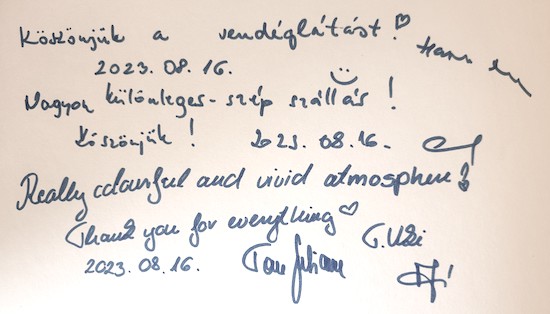 Köszönjük a vendéglátást!
2023. 08. 16.
Nagyon különleges-szép szállás!
Köszönjük! 2023. 08. 16.
Really colourful and vivid atmosphere!
Thank you for everything
2023. 08. 16.